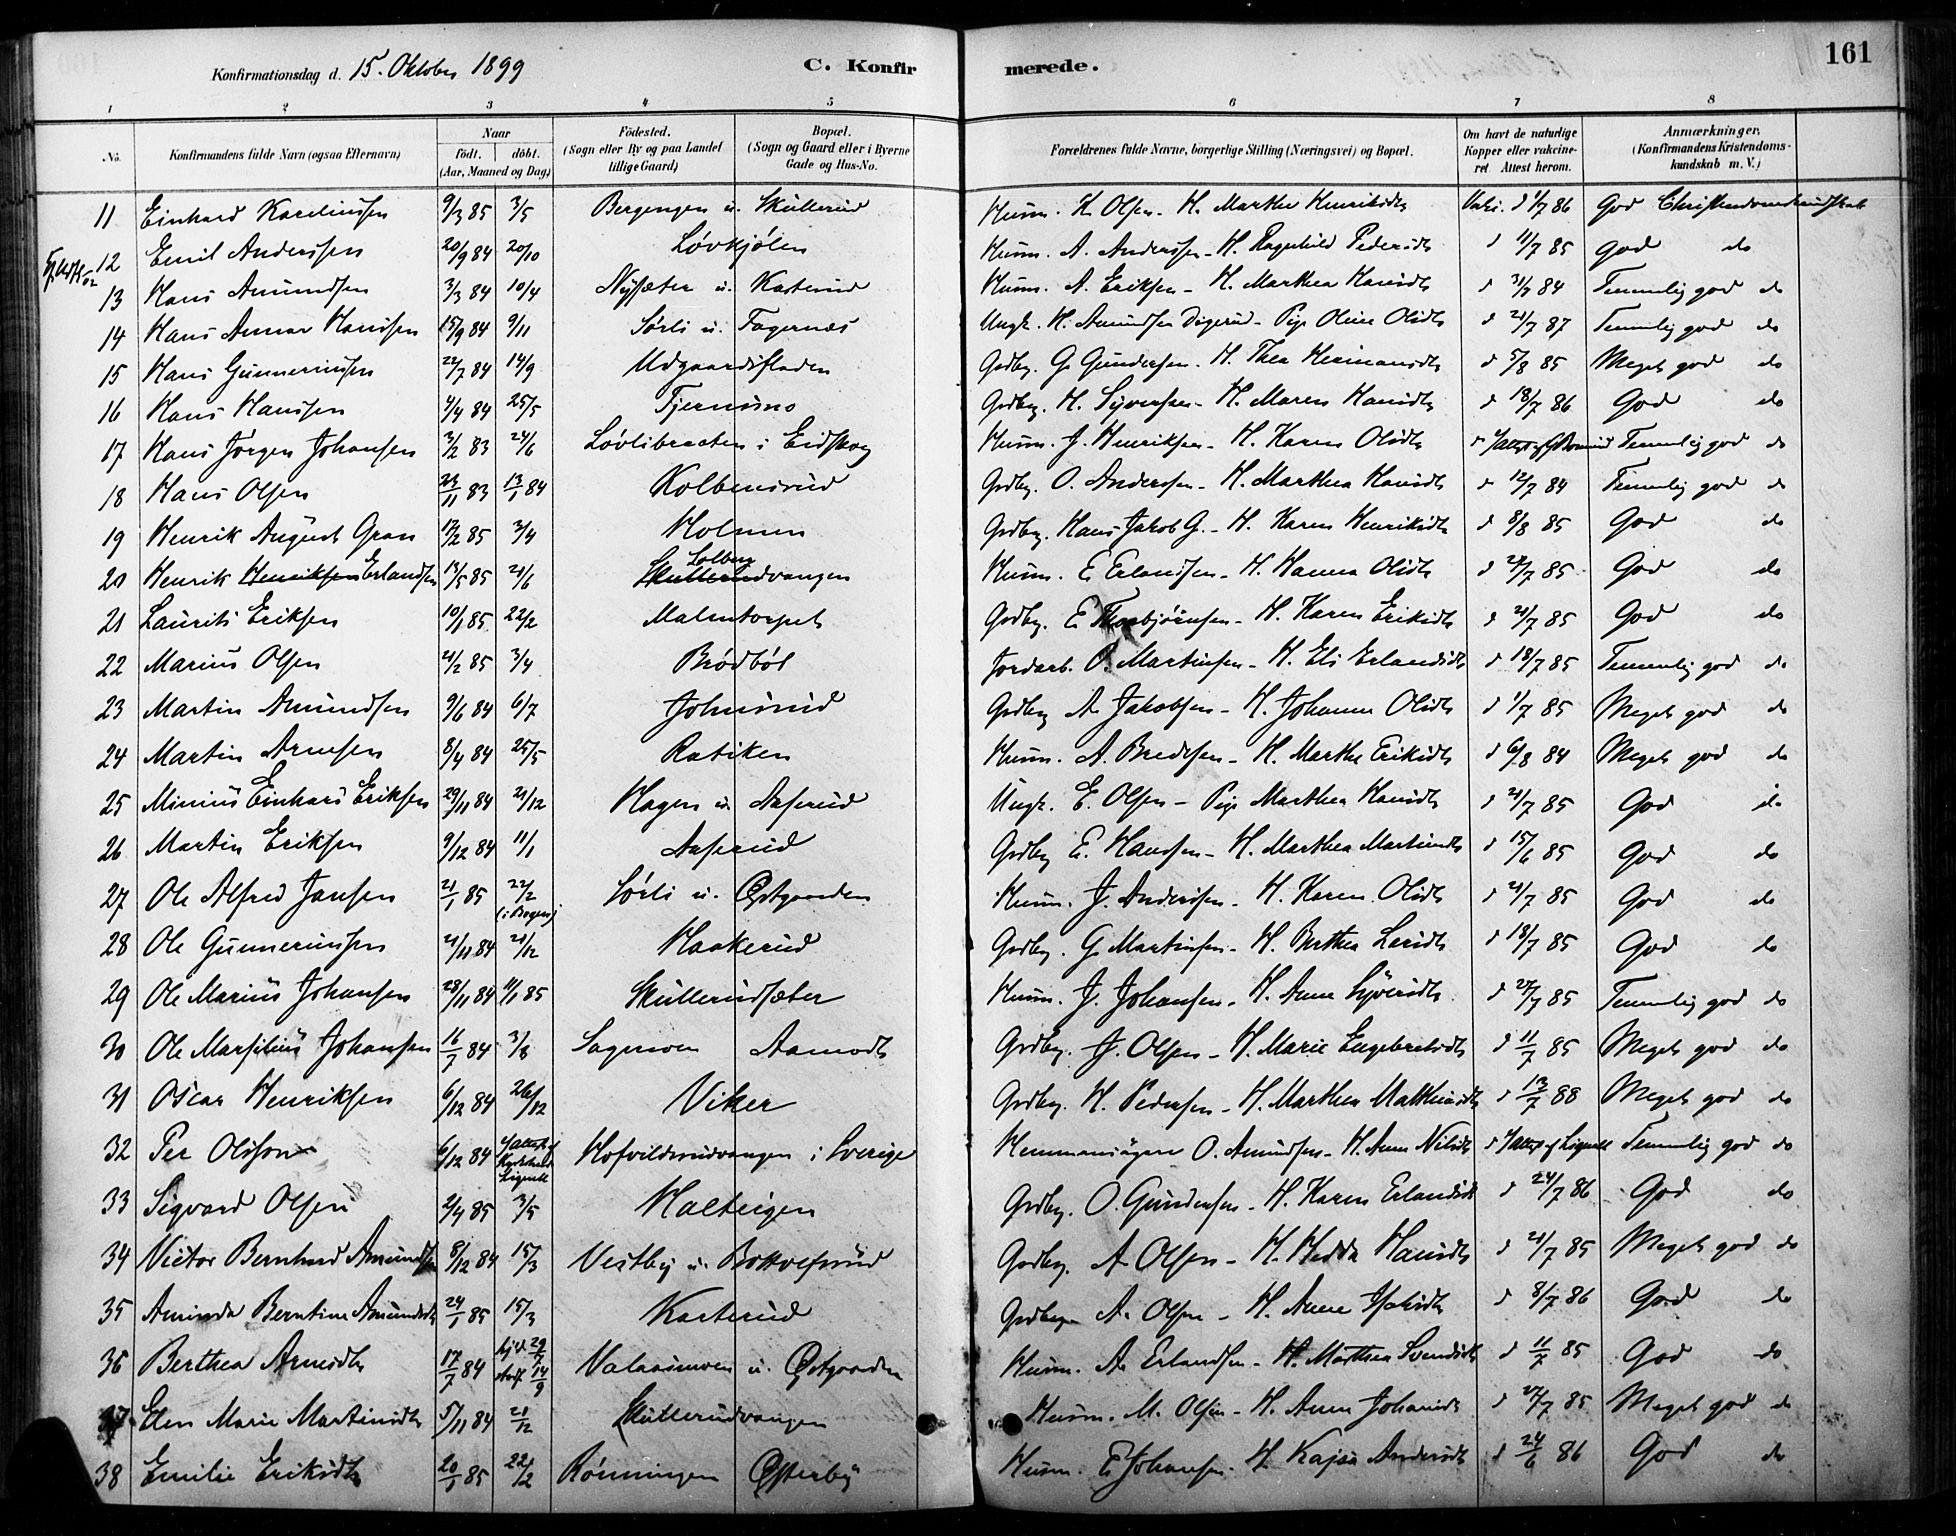 161
Konfirmationsdag d. 15. Oktober 1899 C. Konfirmerede.
1 2 3 4 5 6 7 8
No. Konfirmandens fulde Navn (ogsaa Efternavn) Naar födt. döbt. (Aar, Maaned og Dag) Födested. (Sogn eller By og paa Landet tillige Gaard) Bopæl. (Sogn og Gaard eller i Byerne Gade og Hus-No. Forældrenes fulde Navne, borgerlige Stilling (Næringsvei) og Bopæl. Om havt de naturlige Kopper eller vakcineret Attest herom. Anmærkninger. (Konfirmandens Kristendomskundskab m. V.)
11 Einhard Karelinssen 9/3 85 3/5 Bergengen u. Skullerud Husm. K. Olsen - H. Marthe Henriksdtr Vaks. d 1/7 86 God Christendomskundskab
12 Emil Anderssen 20/9 84 20/10 Løvkjølen Husm. A. Anderssen - H. Ragnhild Pedersdtr d 11/7 85 God do
13 Hans Amundsen 3/3 84 10/4 Nysæter u. Kasterud Husm. A. Eriksen - H. Marthea Hansdtr d 31/7 84 Temmelig god do
14 Hans Annar Hanssen 15/9 84 9/11 Sørli u. Fagernæs Ungk. H. Amundsen Digerud - Pige Oline Olsdtr d 21/7 87 Temmelig god do
15 Hans Gunneriussen 22/7 84 14/9 Udgaardsfladen Grdbr. G. Gundersen - H. Thea Hermansdtr d 5/8 85 Meget god do
16 Hans Hanssen 4/4 84 25/5 Tjernsmo Grdbr. H. Syversen - H. Maren Hansdtr d 18/7 86 God do
17 Hans Jörgen Johansen 3/2 83 24/6 Løvlibraaten i Eidskog Husm. J. Henriksen - H. Karen Olsdtr Temmelig god do
18 Hans Olsen 23/11 83 13/1 84 Kolbensrud Grdbr. O. Andersen - H. Marthea Hansdtr d 12/7 84 Temmelig god do
19 Henrik August Gran 13/2 85 3/4 Holmen Grdbr. Hans Jakob G. - H. Karen Henriksdtr d 8/8 85 God do
20 Henrik Henriksen Erlandsen 13/5 85 21/6 Solberg Skullerudvangen Husm. E. Erlandsen - H. Hanna Olsdtr d 27/7 85 God do
21 Laurits Eriksen 10/1 85 22/2 Malmtorpet Grdbr. E. Thorbjörnsen - H. Karen Eriksdtr d 21/7 85 God do
22 Marius Olsen 21/2 85 3/4 Brødbøl Jordarb. O. Martinsen - H. Eli Erlandsdtr d 18/7 85 Temmelig god do
23 Martin Amundsen 9/6 84 6/7 Johnsrud Grdbr. A. Jakobsen - H. Johanne Olsdtr d 1/7 85 Meget god do
24 Martin Arnesen 8/4 84 25/5 Ratiken Husm. A. Bredesen - H. Marthe Eriksdtr d 6/8 84 Meget god do
25 Minius Einhard Eriksen 29/11 84 21/12 Hagen u. Aaserud Ungk. E. Olsen - Pige Marthea Hansdtr d 21/7 85 God do
26 Martin Eriksen 9/12 84 11/1 Aaserud Grdbr. E. Hanssen - H. Marthea Martinsdtr d 15/6 85 God do
27 Ole Alfred Jansen 21/1 85 22/2 (i Bogen) Sørli u. Østgaarden Husm. J. Anderssen - H. Karen Olsdtr d 21/7 85 God do
28 Ole Gunneriussen 21/11 84 21/12 Haakerud Grdbr. G. Martinsen - H. Berthea Larsdtr d 18/7 85 God do
29 Ole Marius Johansen 28/11 84 11/1 85 Skullerudsæter Husm. J. Johansen - H. Anne Syversdtr d 27/7 85 Temmelig god do
30 Ole Marselius Johansen 16/7 84 3/8 Sagmoen Aamodt Grdbr. J. Olsen - H. Marie Engebretsdtr d 11/7 85 Meget god do
31 Oscar Henriksen 6/12 84 26/12 Viker Grdbr. H. Pedersen - H. Marthea Matthiasdtr d 13/7 88 Meget god do
32 Per Olsson 6/12 84 Hofvildsrudvangen i Sverige Hemmansägare O. Amundsen - H. Anne Nilsdtr Temmelig god do
33 Sigvard Olsen 2/4 85 3/5 Malteigen Grdbr. O. Gundersen - H. Karen Erlandsdtr d 24/7 86 God do
34 Victor Bernhard Amundsen 8/12 84 15/3 Vestby u. Bottolfsrud Grdbr. A. Olsen - H. Hedda Hansdtr d 21/7 85 Meget god do
35 Aminda Berntine Amundsdtr 24/1 85 15/3 Kasterud Grdbr. A. Olsen - H. Anne Isaksdtr d 8/7 86 God do
36 Berthea Arnesdtr 17/7 84 hjd. 29/7 14/9 Valaasmoen u. Østgaarden Husm. A. Erlandsen - H. Marthea Svendsdtr d 11/7 85 God do
37 Elen Marie Martinsdtr 5/11 84 21/12 Skullerudvangen Husm. M. Olsen - H. Anne Johansdtr d 27/7 85 Meget god do
38 Emilie Eriksdtr 20/1 85 22/2 Rønningen Østerby Husm. E. Johansen - H. Kajsa Andersdtr d 24/6 86 God do